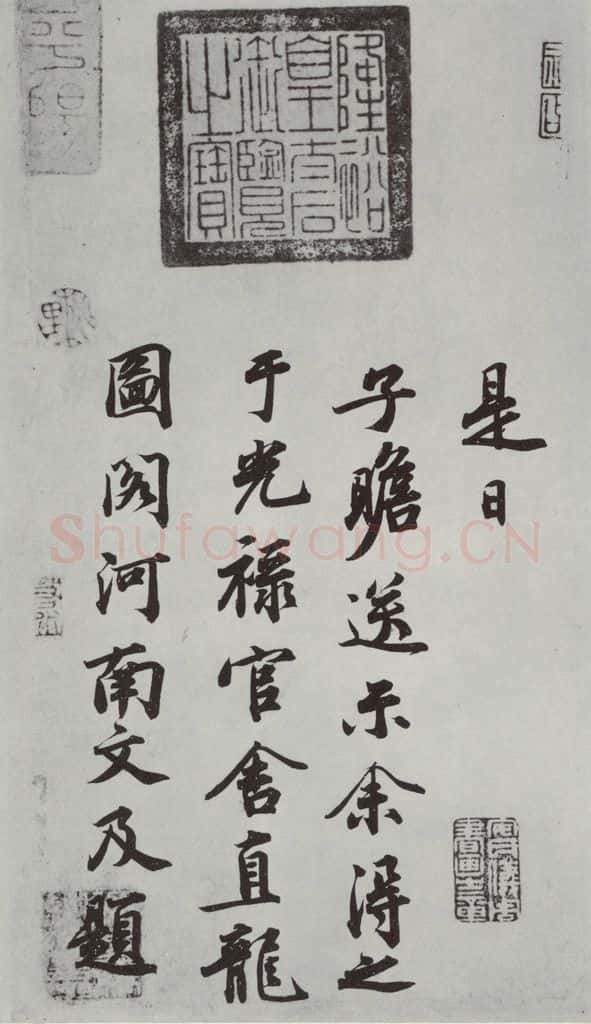 隆裕
皇太后
御覽
之寶
是日
子瞻送示余得之
于光祿官舍直龍
圖閣河南文及題
Shufawang.CN